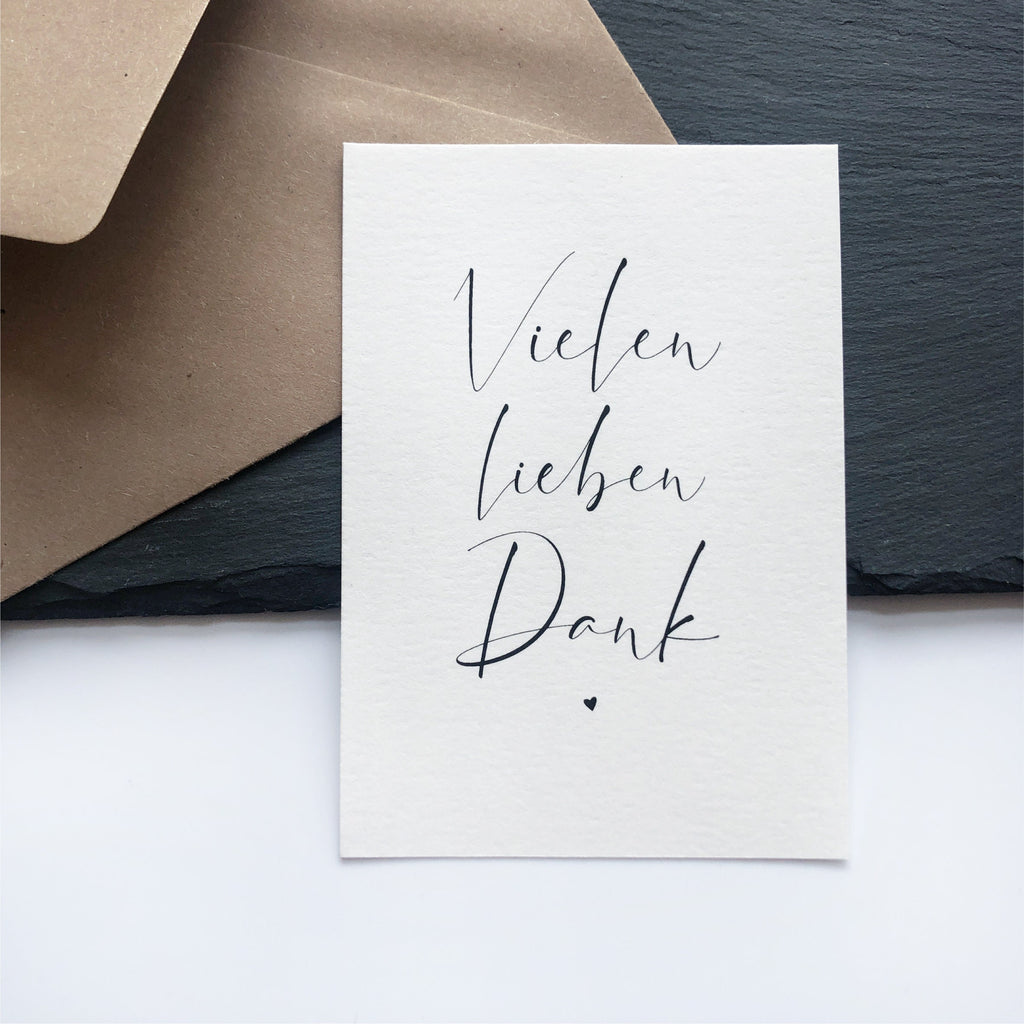 Vielen
lieben
Dank